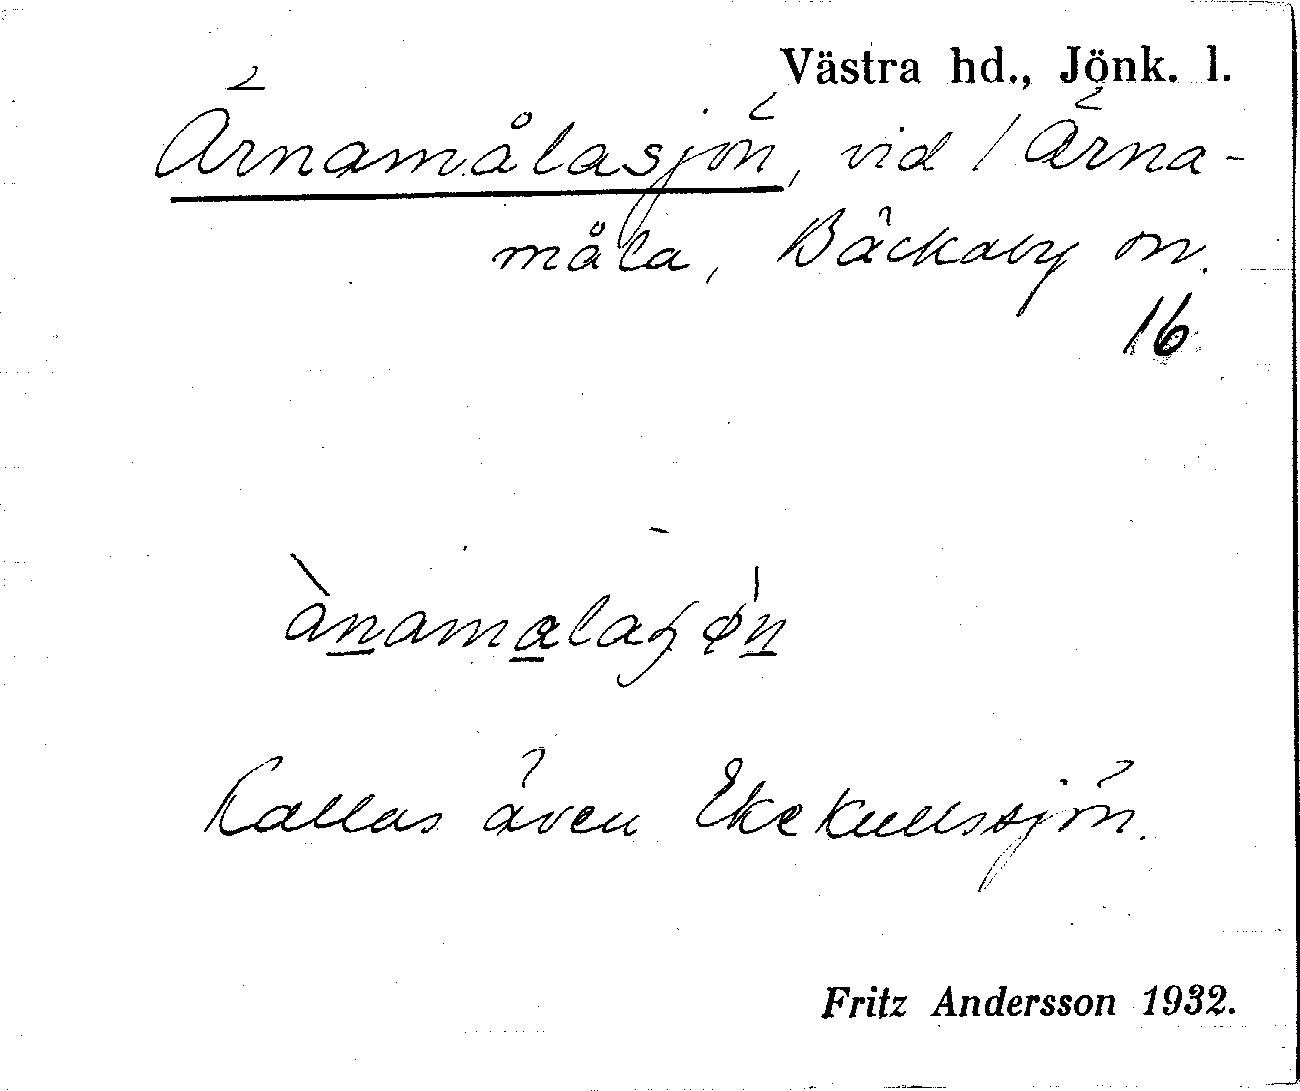 Västra hd., Jönk. l.
Ärnamålasjön, vid / Ärna-
måla, Bäckaby sn.
16
Kallas även Ekekullssjön.
Fritz Andersson 1932.